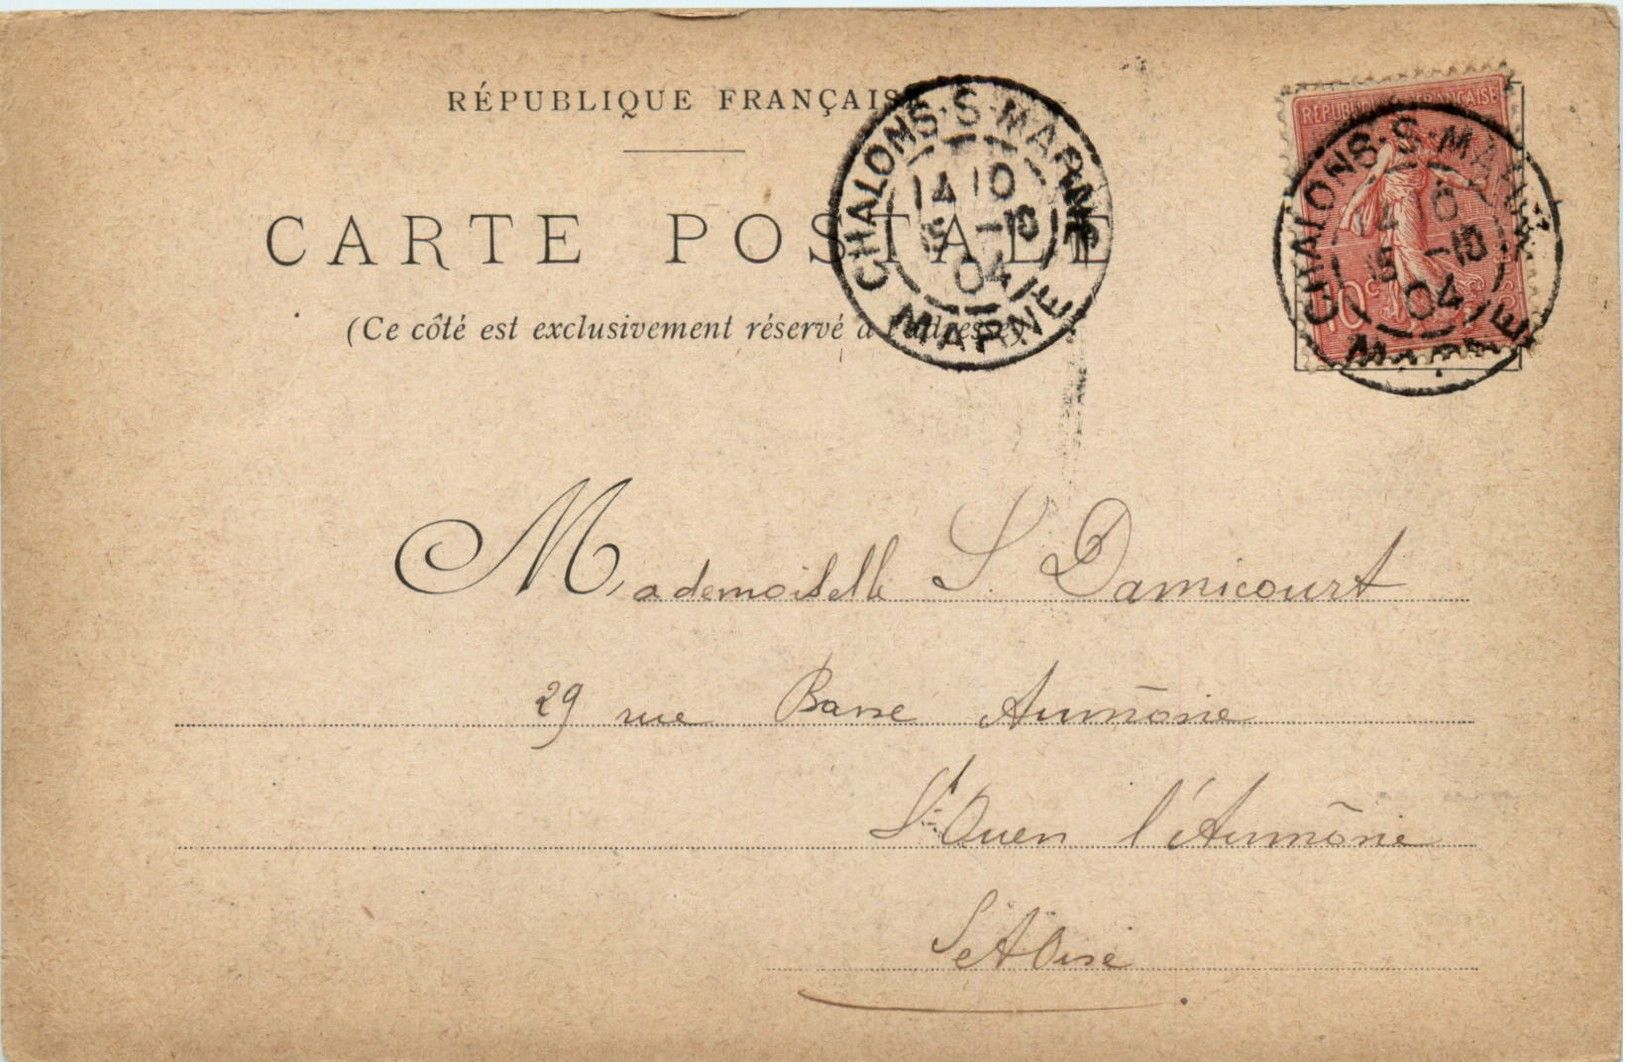 RÉPUBLIQUE FRANÇAISE
CARTE POSTALE
(Ce côté est exclusivement réservé à l'adresse)
CHALONS-S-MARNE
10
-10
04
MARNE
RÉPUBLIQUE FRANÇAISE
10 c
CHALONS-S-MARNE
-10
04
MARNE
Mademoiselle S. Damicourt
29 rue Basse Aumône
St Ouen l'Aumône
S et Oise